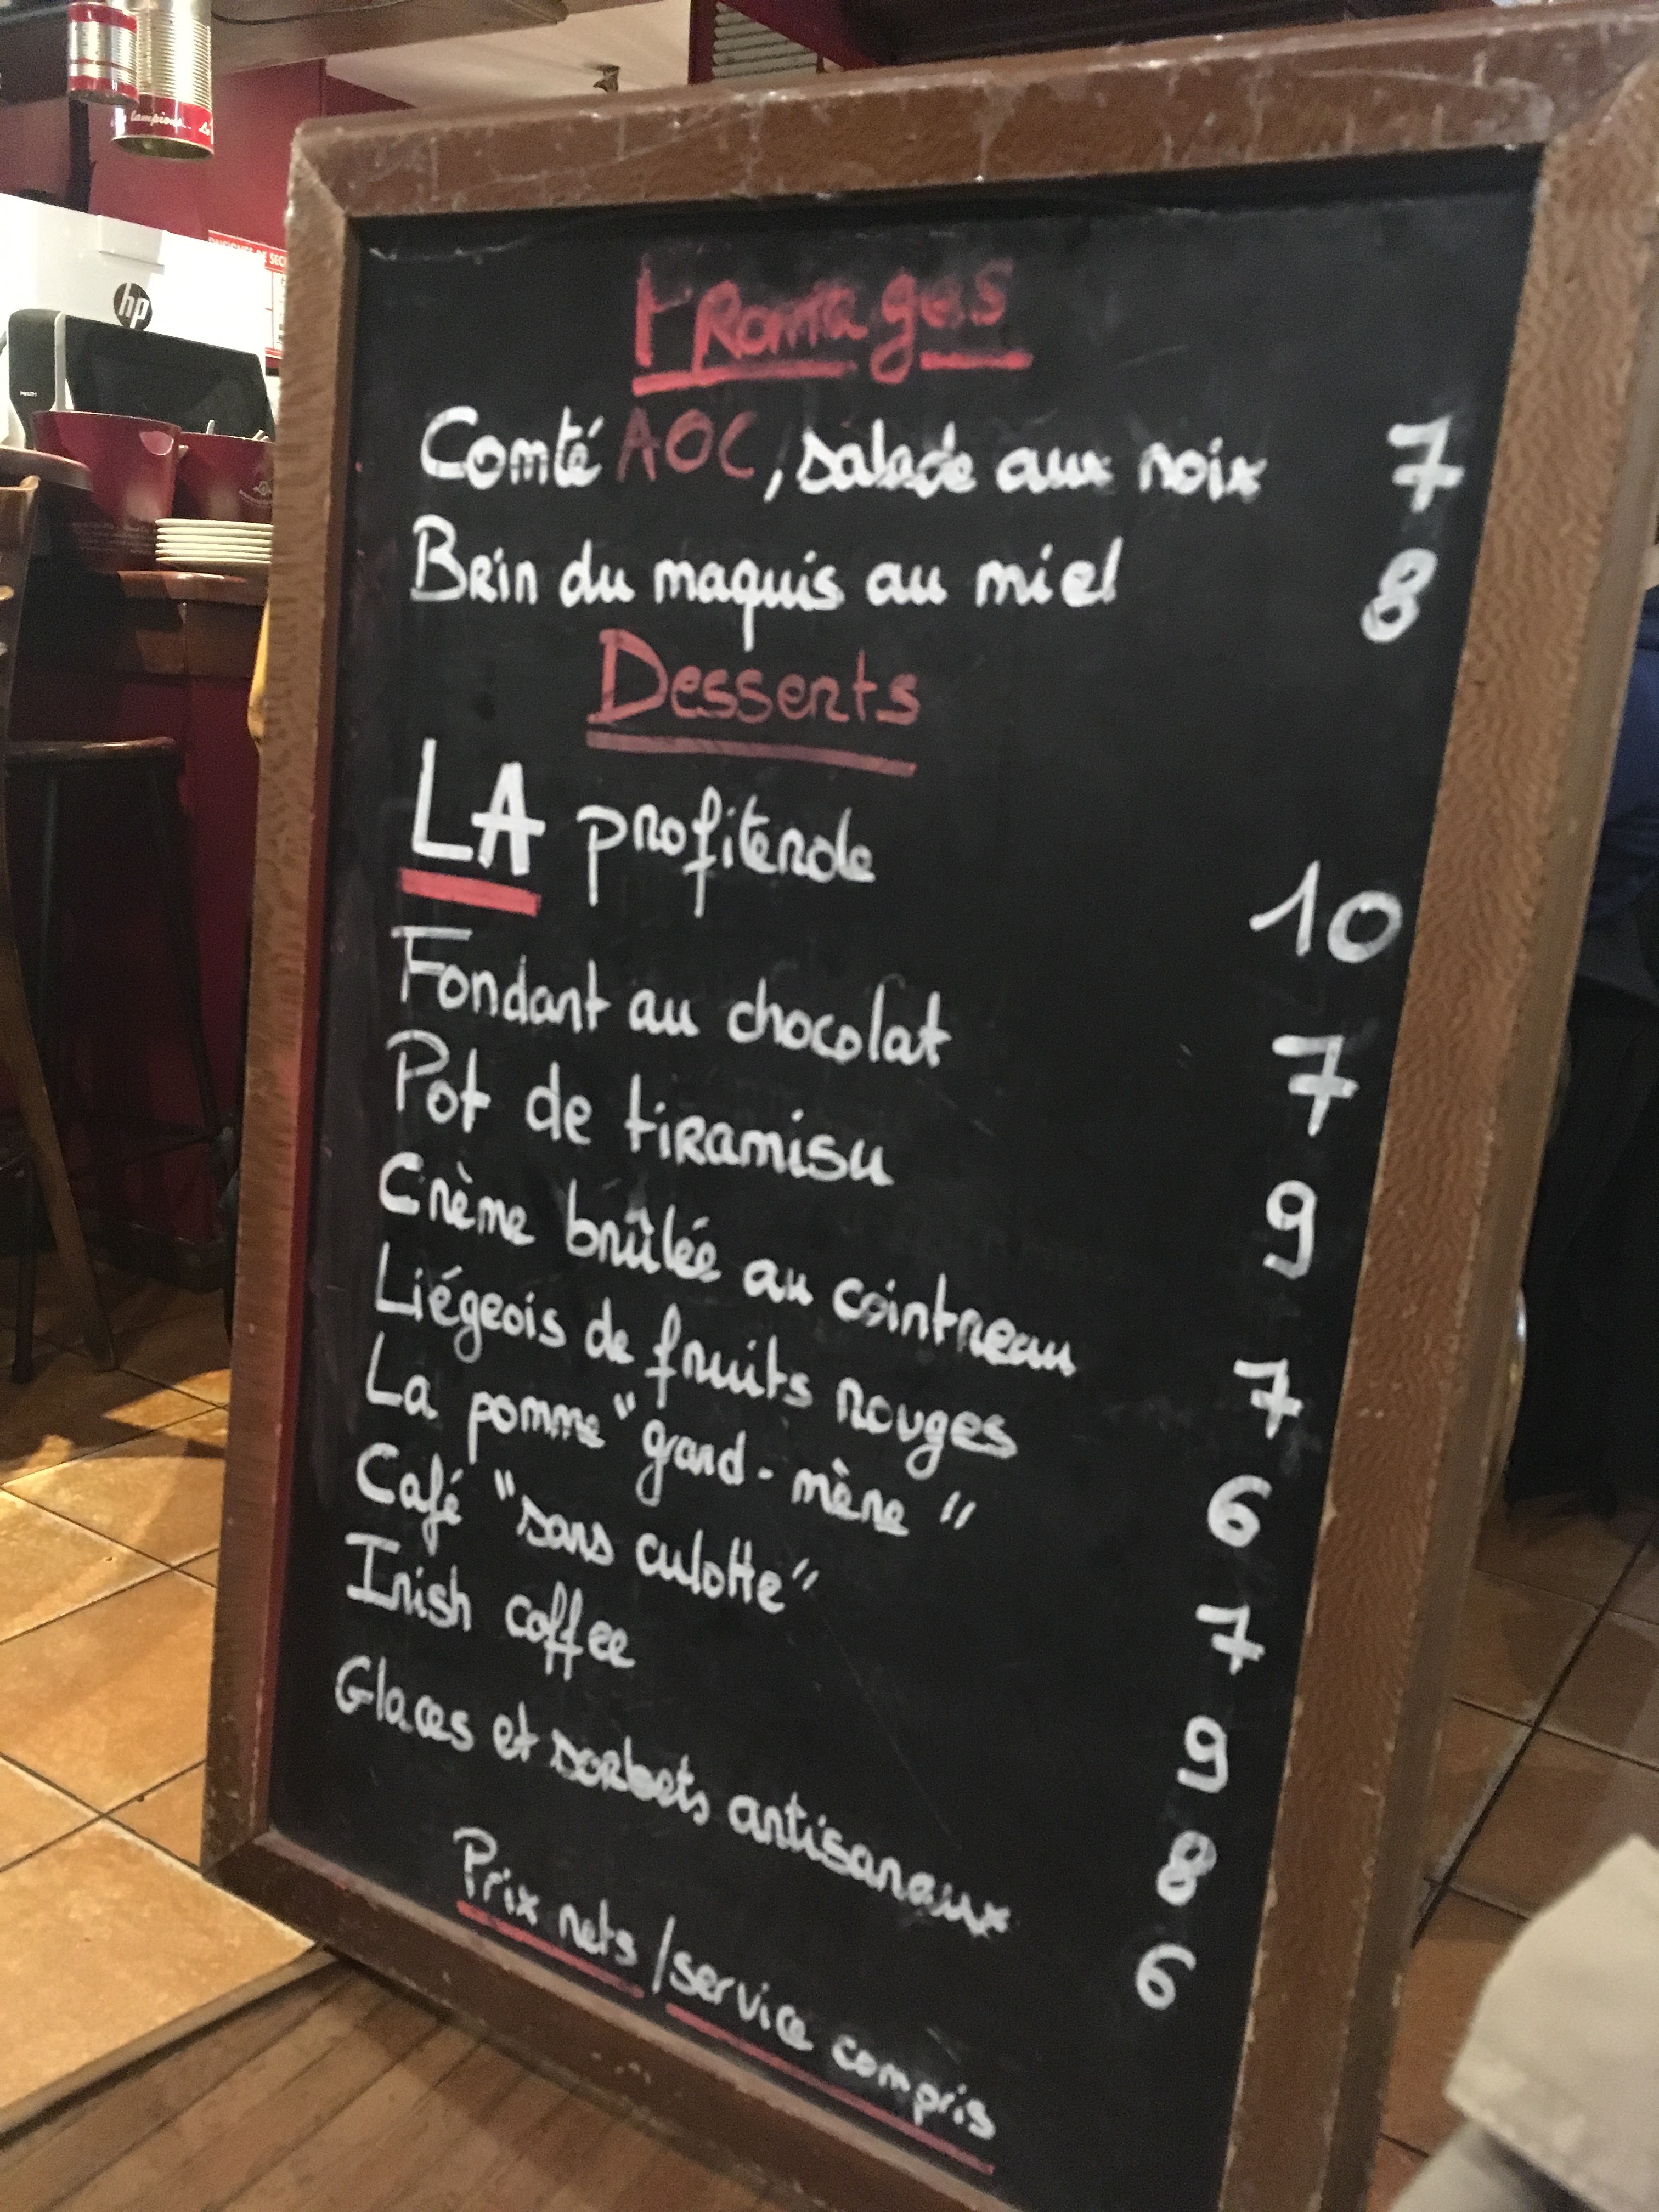 Fromages
Comté AOC, salade aux noix 7
Brin du maquis au miel 8
Desserts
LA profiterole 10
Fondant au chocolat 7
Pot de tiramisu 9
Crème brûlée au cointreau 7
Liégeois de fruits rouges 6
La pomme "grand-mère" 7
Café "sans culotte" 9
Irish coffee 8
Glaces et sorbets artisanaux 6
Prix nets / service compris
hp